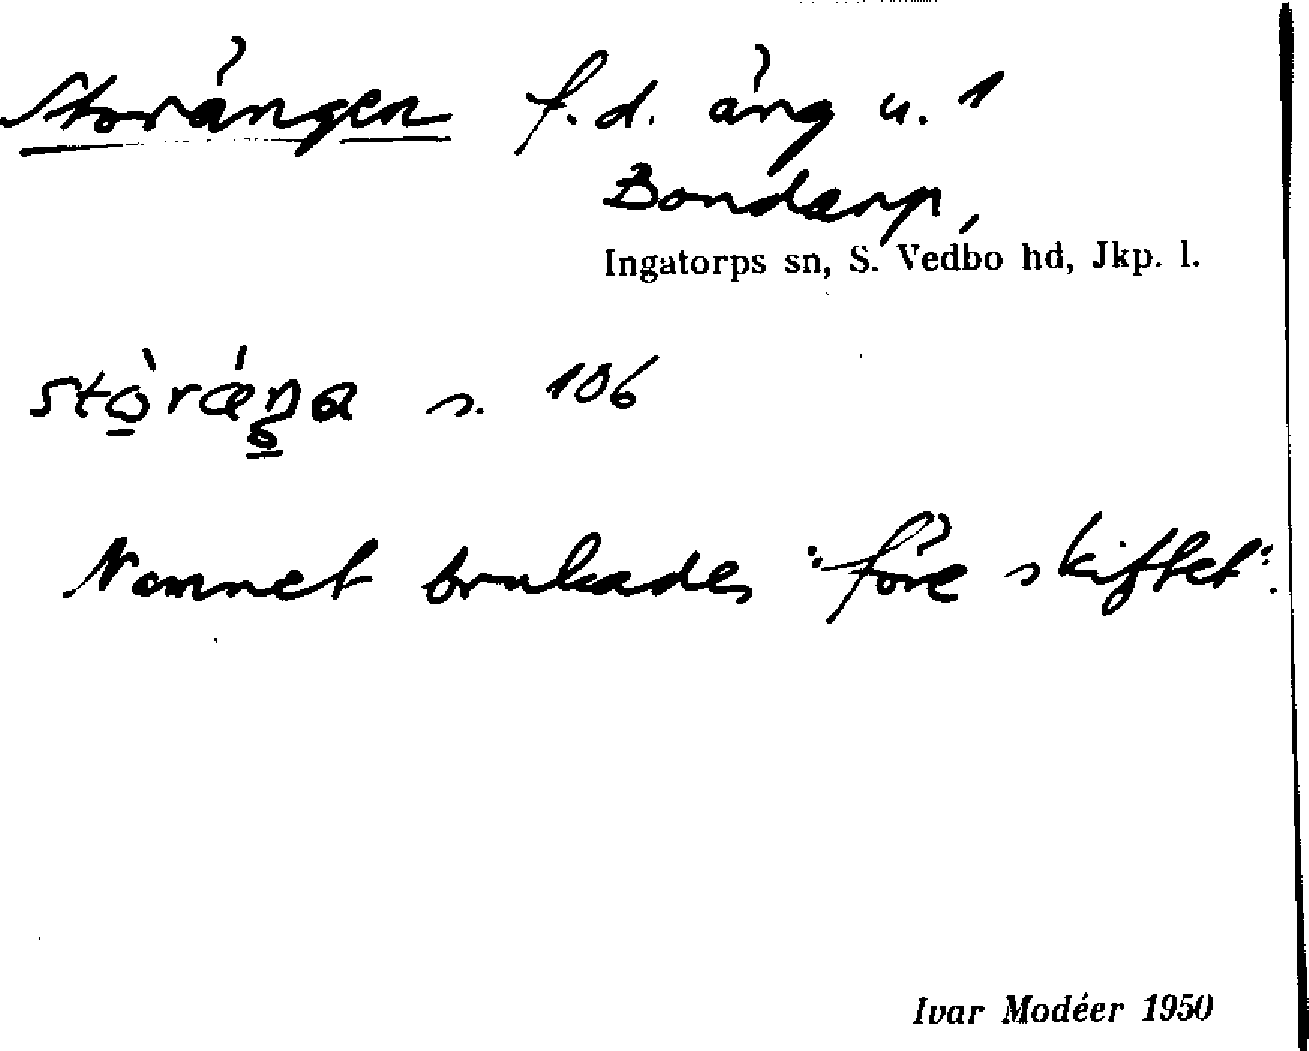 Storängen f.d. äng u. 1
Bondarp,
Ingatorps sn, S. Vedbo hd, Jkp. l.
s. 106
Namnet brukades "före skiftet".
Ivar Modéer 1950